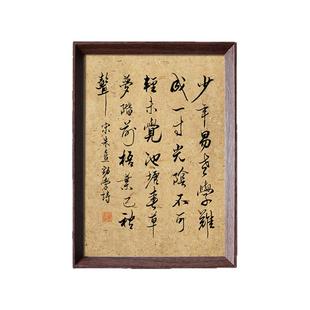 少年易老學難
成一寸光陰不可
輕未覺池塘春草
夢階前梧葉已秋
聲
宋朱熹勸學詩